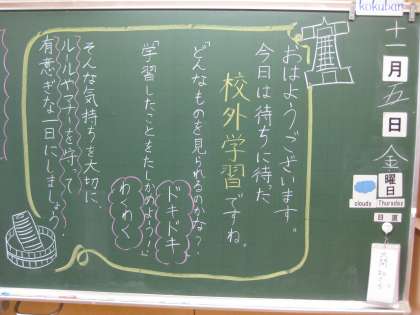 kokuban
十一月五日金
曜日
Thursday
clouds
日直
おはようございます。
今日は待ちに待った
校外学習ですね。
「どんなものを見られるのかな？
ドキドキ
「学習したことをたしかめよう！」
わくわく
そんな気持ちを大切に、
ルールやマナーを守って
有意ぎな一日にしましょう。